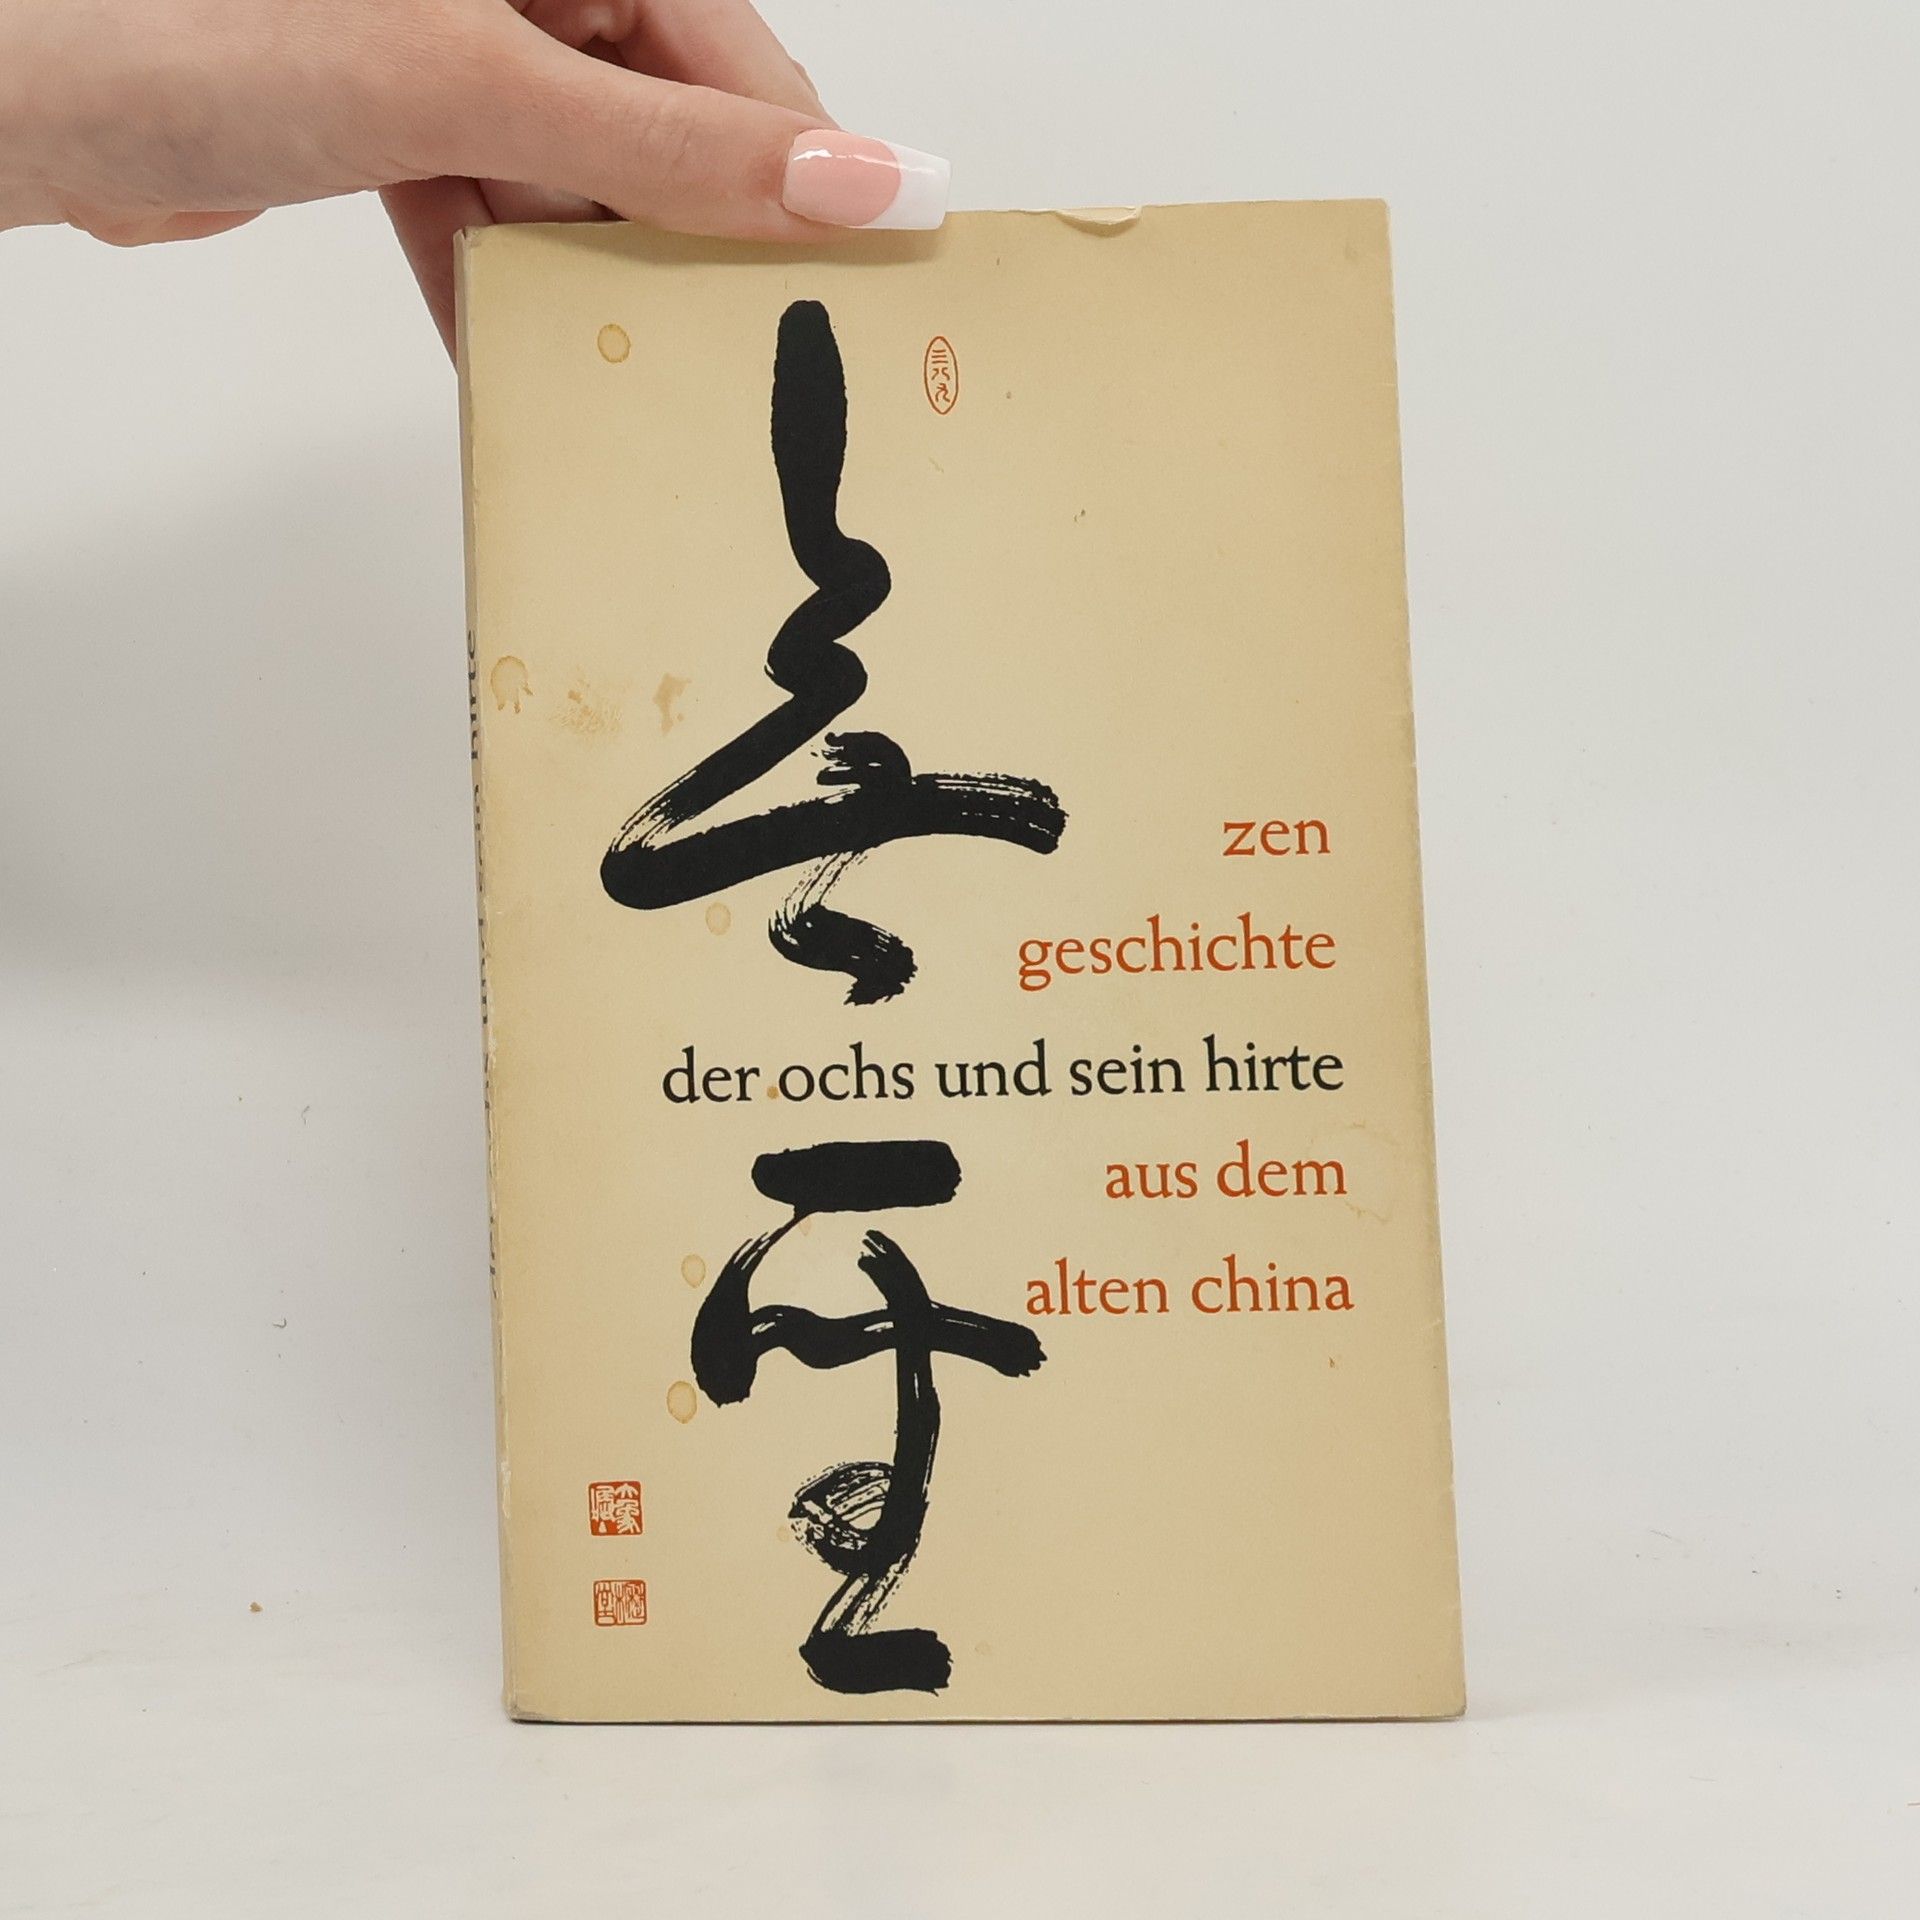 三八九
zen
geschichte
der ochs und sein hirte
aus dem
alten china